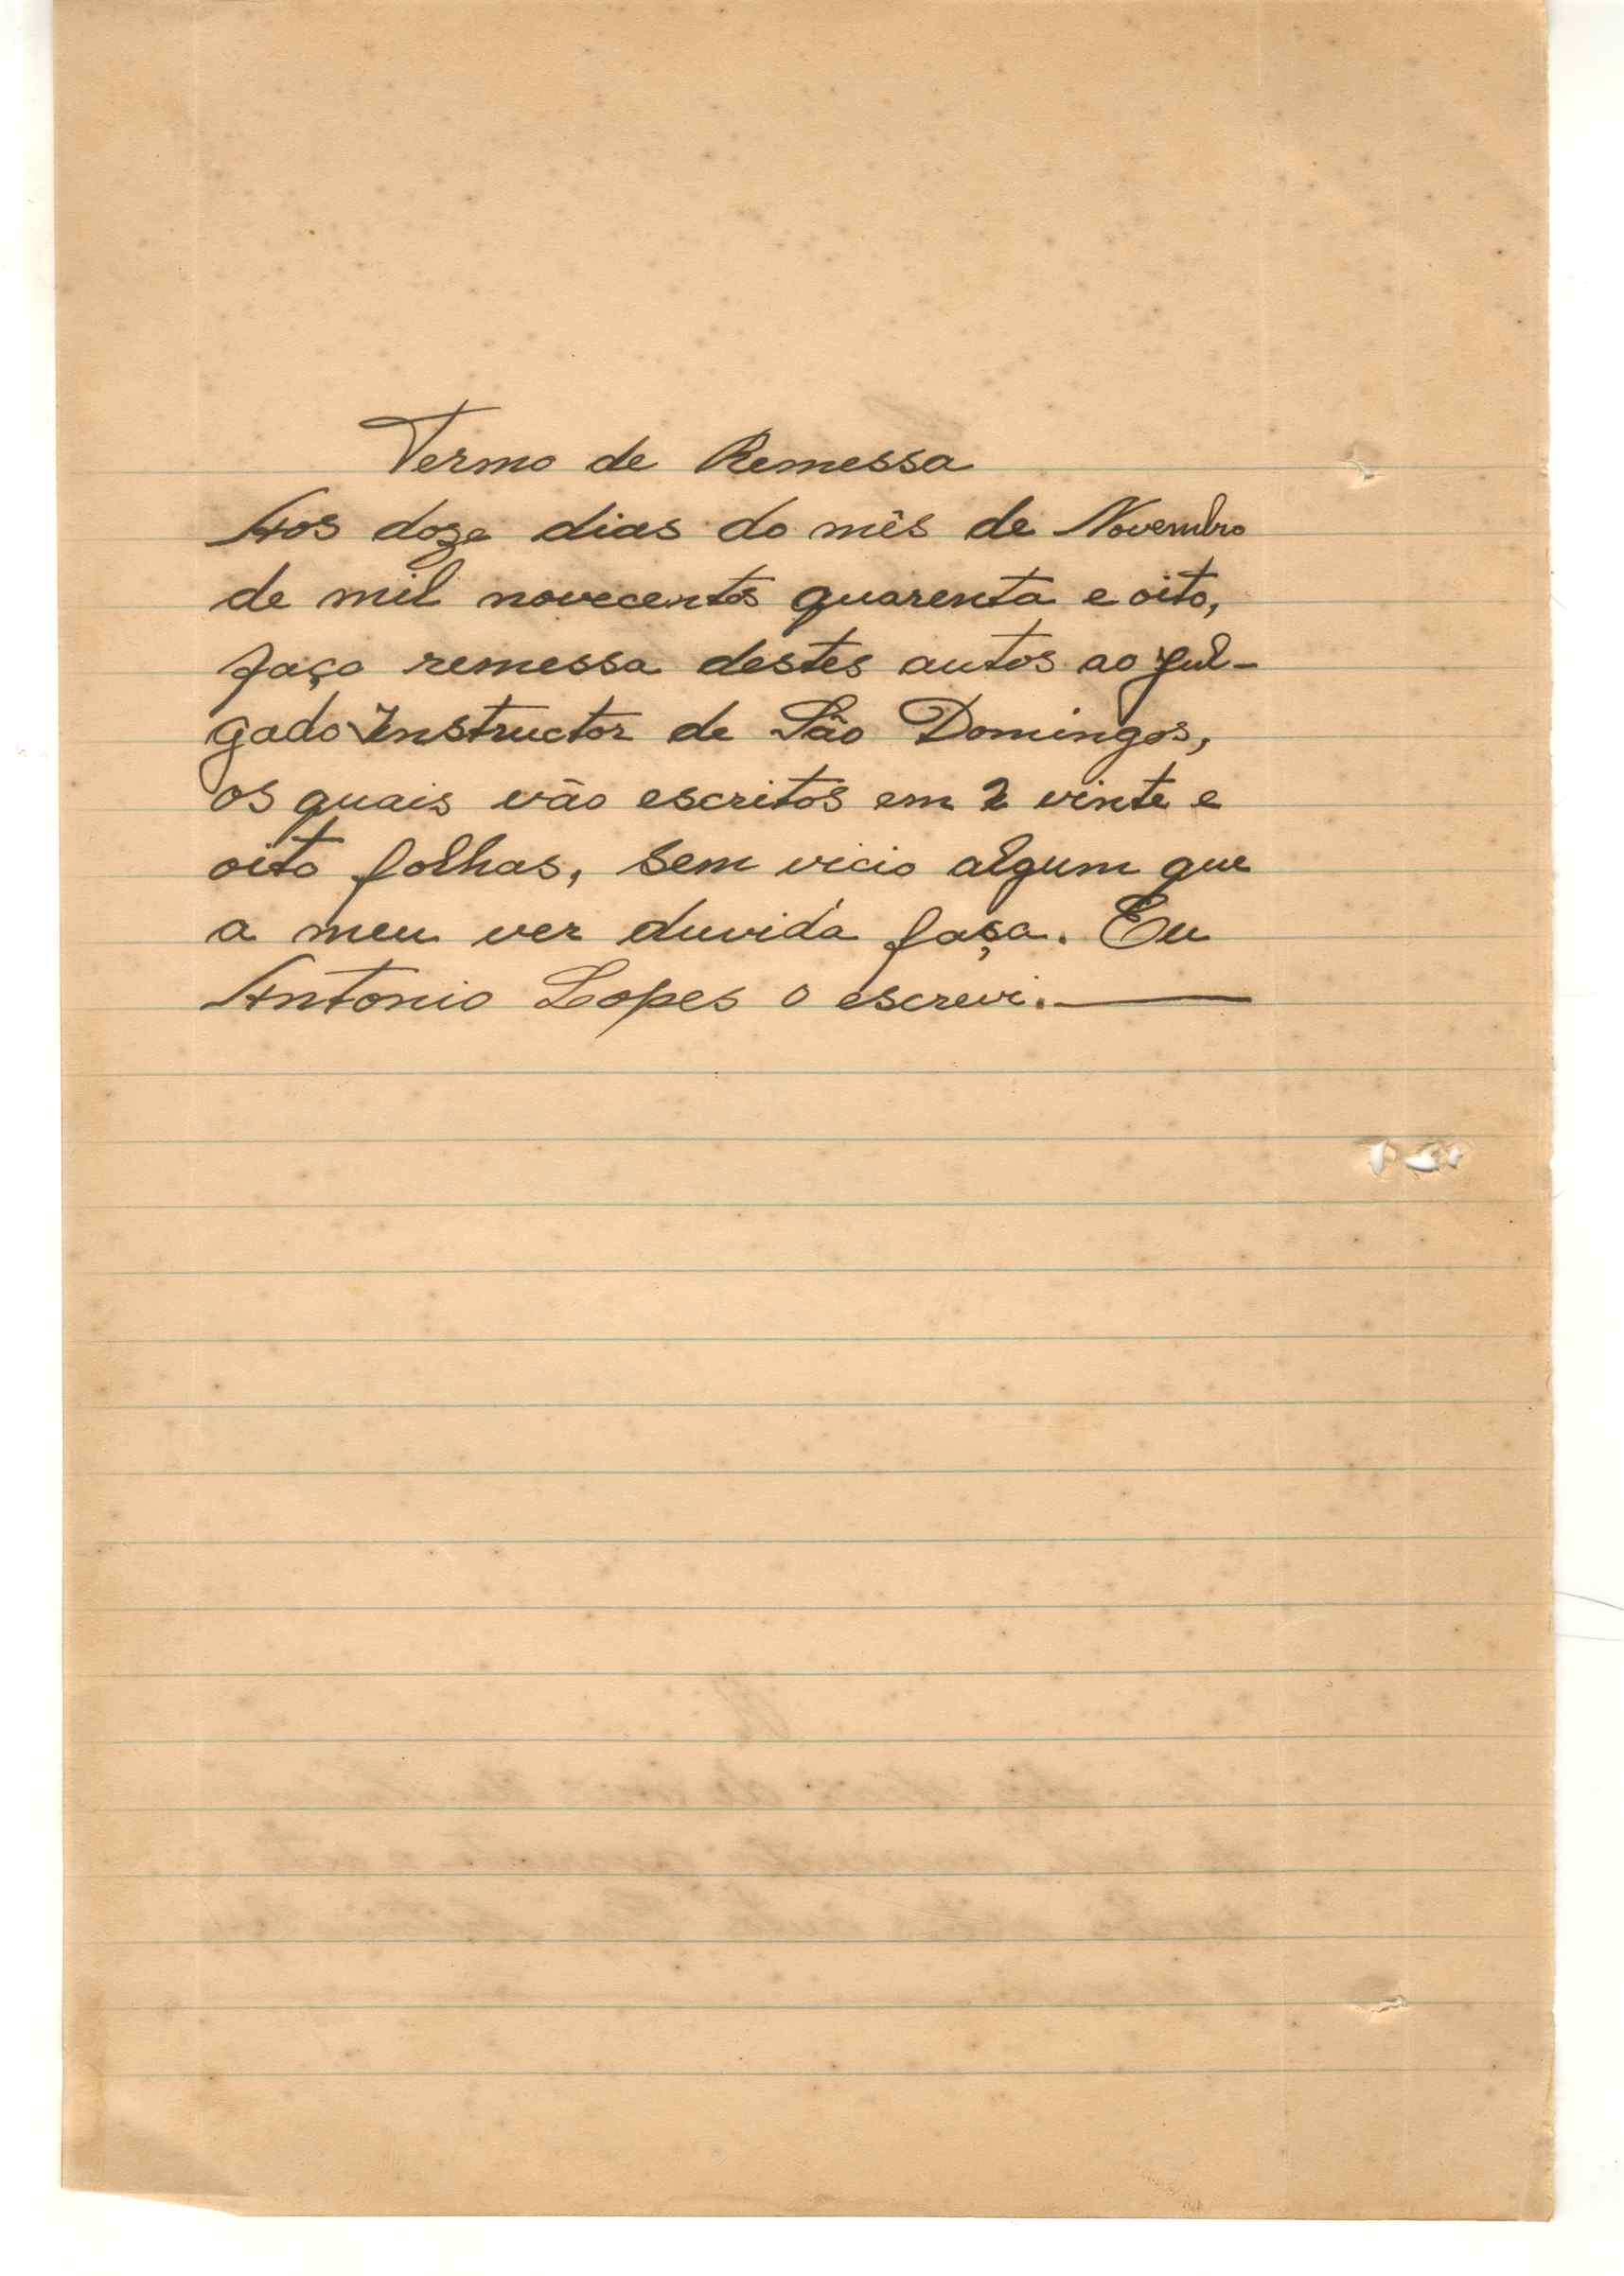 Termo de Remessa
Aos doze dias do mês de Novembro
de mil novecentos quarenta e oito,
faço remessa destes autos ao Jul-
gado Instructor de São Domingos,
os quais vão escritos em 2 vinte e
oito folhas, sem vicio algum que
a meu ver duvida faça. Eu
Antonio Lopes o escrevi.